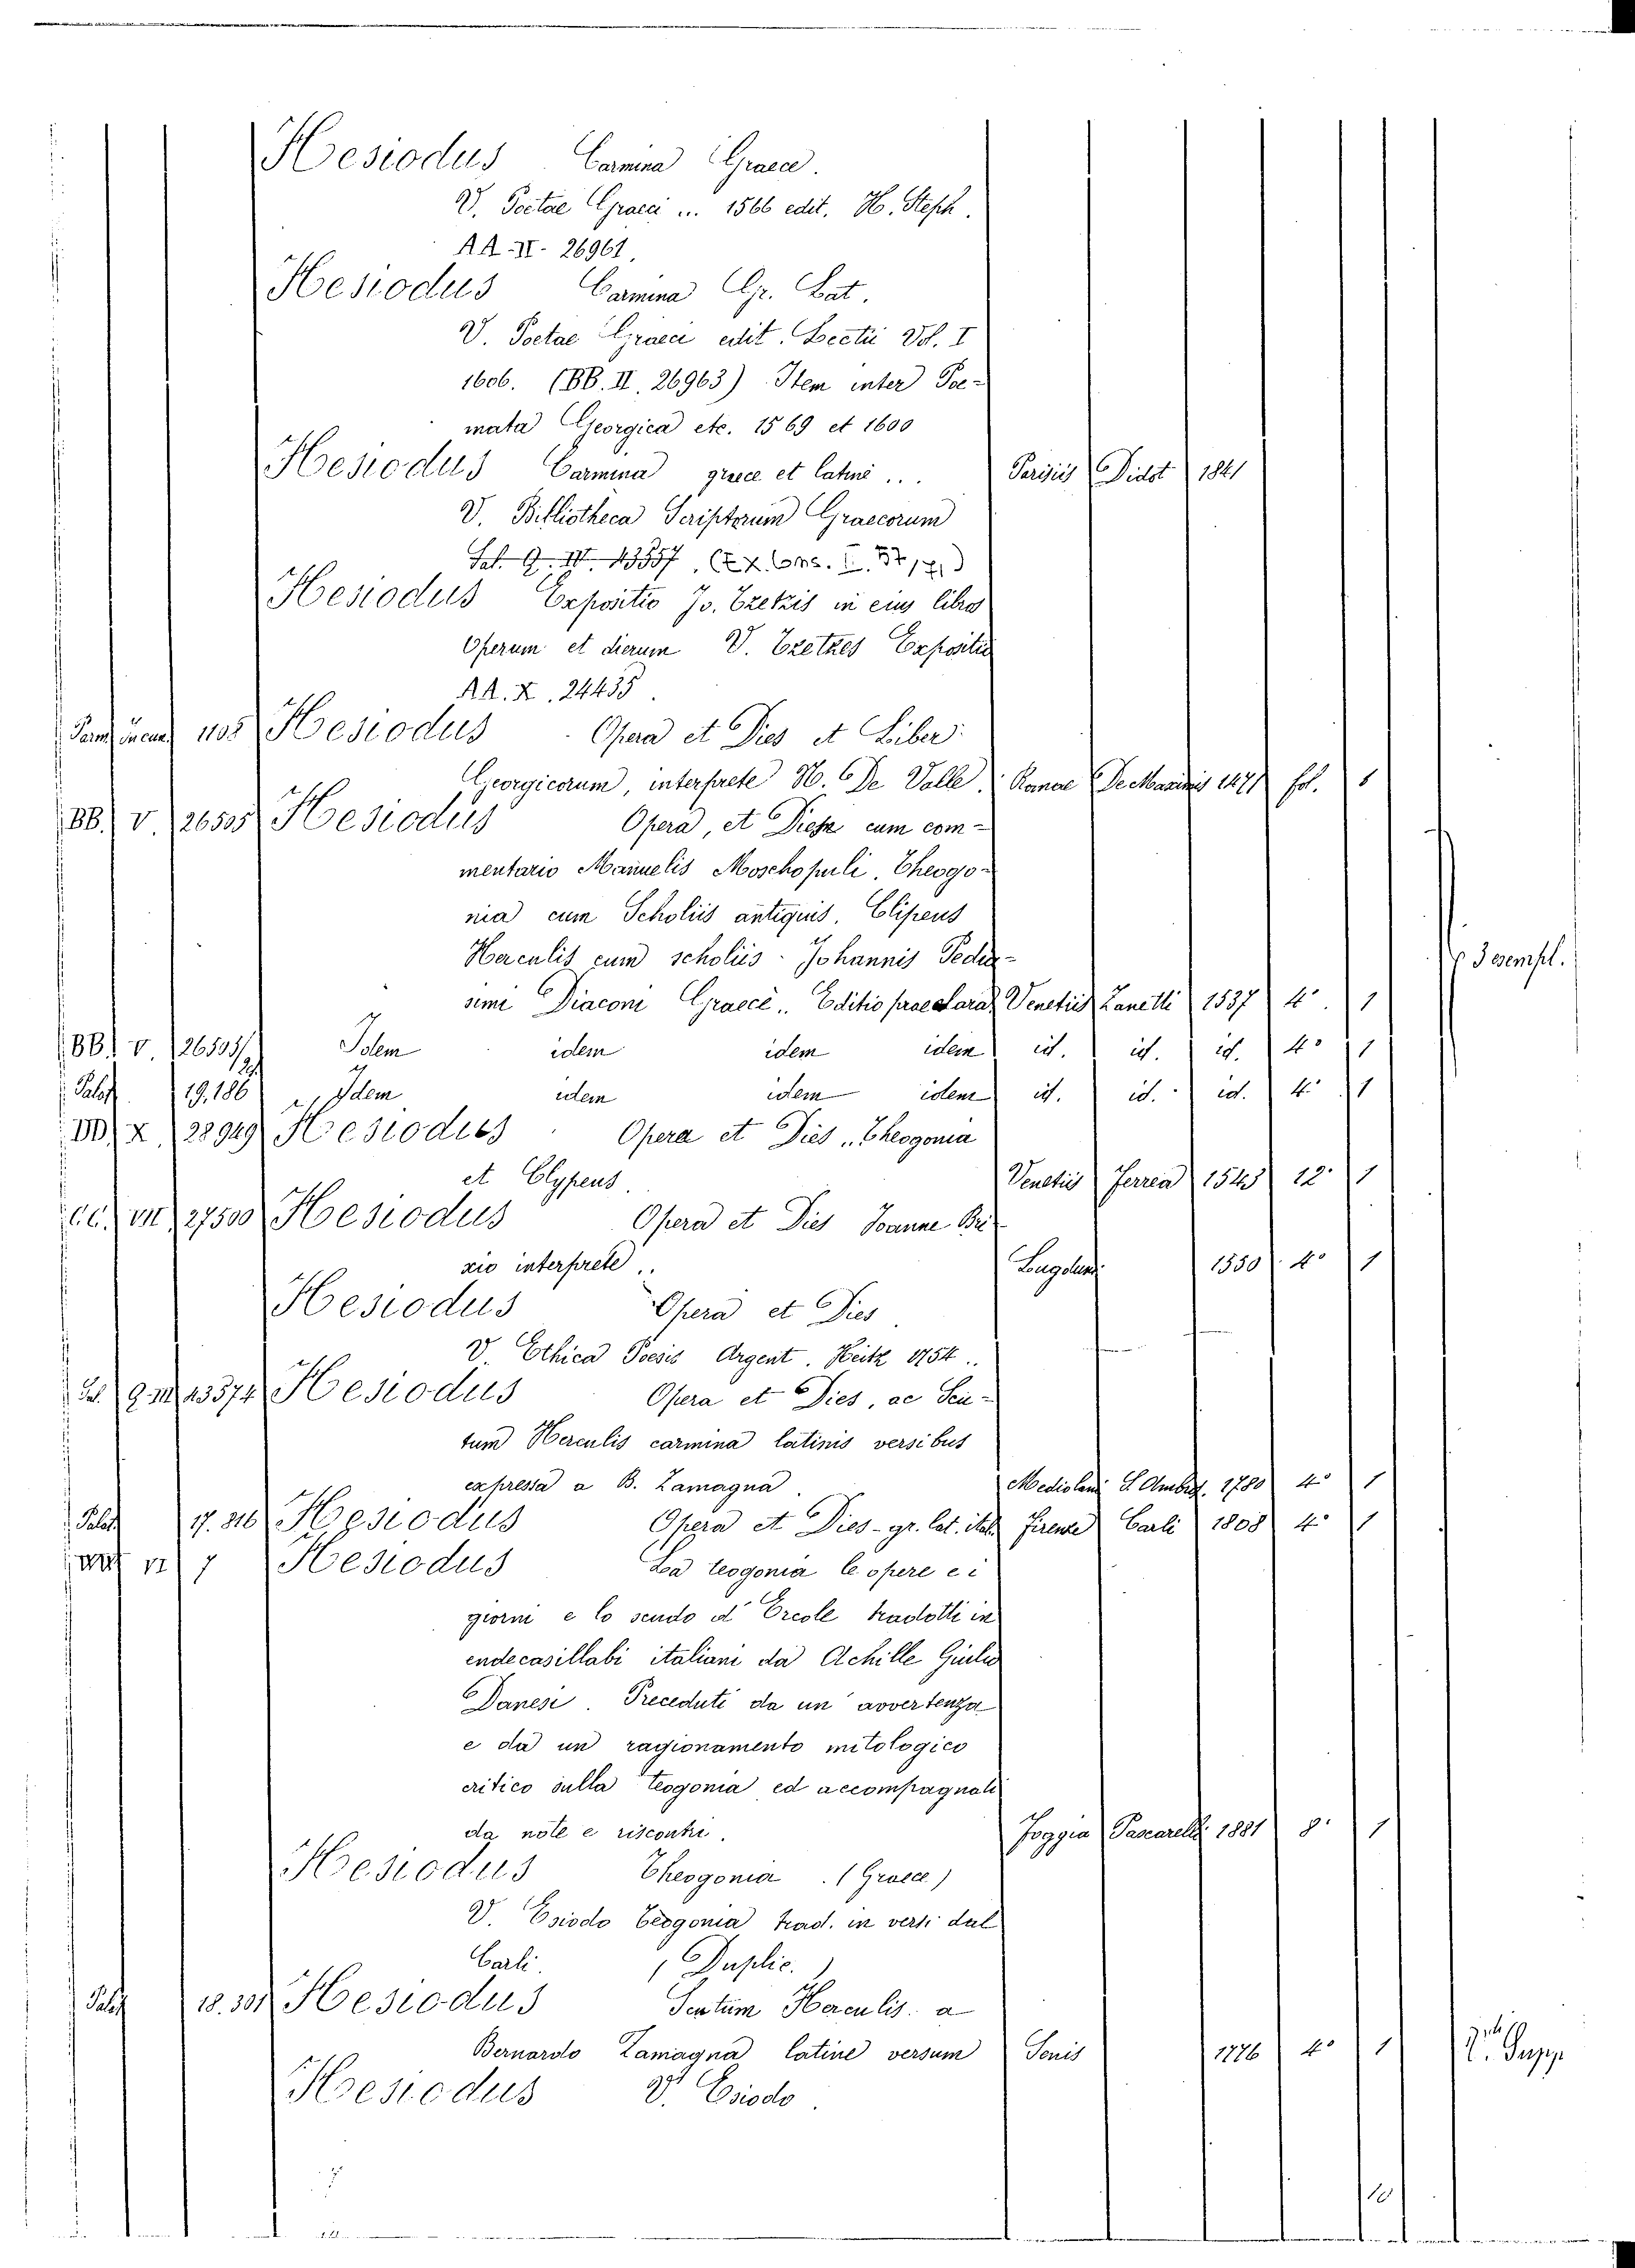 Hesiodus Carmina Graece.
V. Poetae Graeci ... 1566 edit. H. Steph.
AA-II- 26961.
Hesiodus Carmina Gr. Lat.
V. Poetae Graeci edit. Lectii Vol. I
1606. (BB. II. 26963) Item inter Poe-
mata Georgica etc. 1569 et 1600
Hesiodus Carmina graece et latine ... Parisiis Didot 1841
V. Bibliotheca Scriptorum Graecorum
Sal. 9. IV. 13557.
Hesiodus Expositio Jo. Tzetzis in eius libros
Operum et dierum V. Tzetzes Expositio
AA. X. 24435.
1105 Hesiodus Opera et Dies et Liber
Georgicorum, interprete N. De Valle. Romae De Marinis 1471 fol. 1
BB. V 26505 Hesiodus Opera, et Dies cum com-
mentario Manuelis Moschopuli. Theogo-
nia cum Scholiis antiquis. Clipeus
Herculis cum scholiis. Johannis Pedia-
simi Diaconi Graece.. Editio praeclara Venetiis Zanetti 1537 4° 1 3 esempl.
BB. V 26503/2 Idem idem idem idem id. id. id. 4° 1
Palat. 19.186 Idem idem idem idem id. id. id. 4° 1
DD. X 28949 Hesiodus Opera et Dies.. Theogonia
et Clypeus. Venetiis Ferrea 1543 12° 1
CC. VII 27500 Hesiodus Opera et Dies Joanne Bri-
xio interprete.. Lugduni 1550 4° 1
Hesiodus Opera et Dies.
V. Ethica Poesis Argent. Heitz 1754..
Sal. 9. III 13574 Hesiodus Opera et Dies, ac Scu-
tum Herculis carmina latinis versibus
expressa a B. Zamagna. Mediolani S. Ambros. 1780 4° 1
Palat. 17.216 Hesiodus Opera et Dies - gr. lat. ital. Firenze Carli 1808 4° 1
VI 7 Hesiodus La teogonia le opere e i
giorni e lo scudo d'Ercole tradotti in
endecasillabi italiani da Achille Giulio
Danesi. Preceduti da un' avvertenza
e da un ragionamento mitologico
critico sulla teogonia ed accompagnati
da note e riscontri. Foggia Pascarelli 1881 8° 1
Hesiodus Theogonia. (Graece)
V. Esiodo Teogonia trad. in versi dal
Carli. (Duplic.)
Palat. 18.301 Hesiodus Scutum Herculis a
Bernardo Zamagna latine versum Senis 1776 4° 1
Hesiodus V. Esiodo.
10